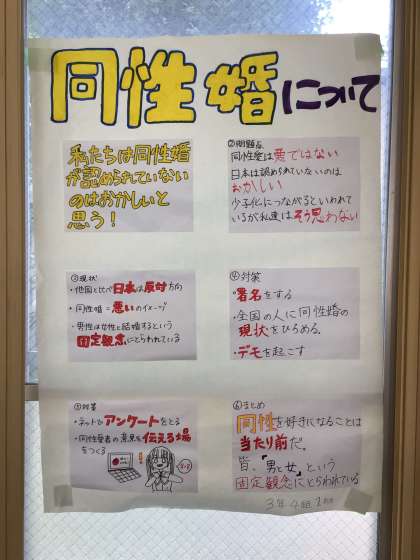 同性婚について
私たちは同性婚
が認められていない
のはおかしいと
思う！
②問題点
同性愛は悪ではない
日本は認められていないのは
おかしい
少子化につながるといわれて
いるが私達はそう思わない
③現状
・他国と比べ日本は反対方向
・同性婚＝悪いのイメージ
・男性は女性と結婚するという
固定観念にとらわれている
④対策
・署名をする
・全国の人に同性婚の
現状をひろめる。
・デモを起こす
・ネットでアンケートをとる
・同性愛者の意見を伝える場
をつくる
⑥まとめ
同性を好きになることは
当たり前だ。
皆、「男と女」という
固定観念にとらわれている
3年4組2班